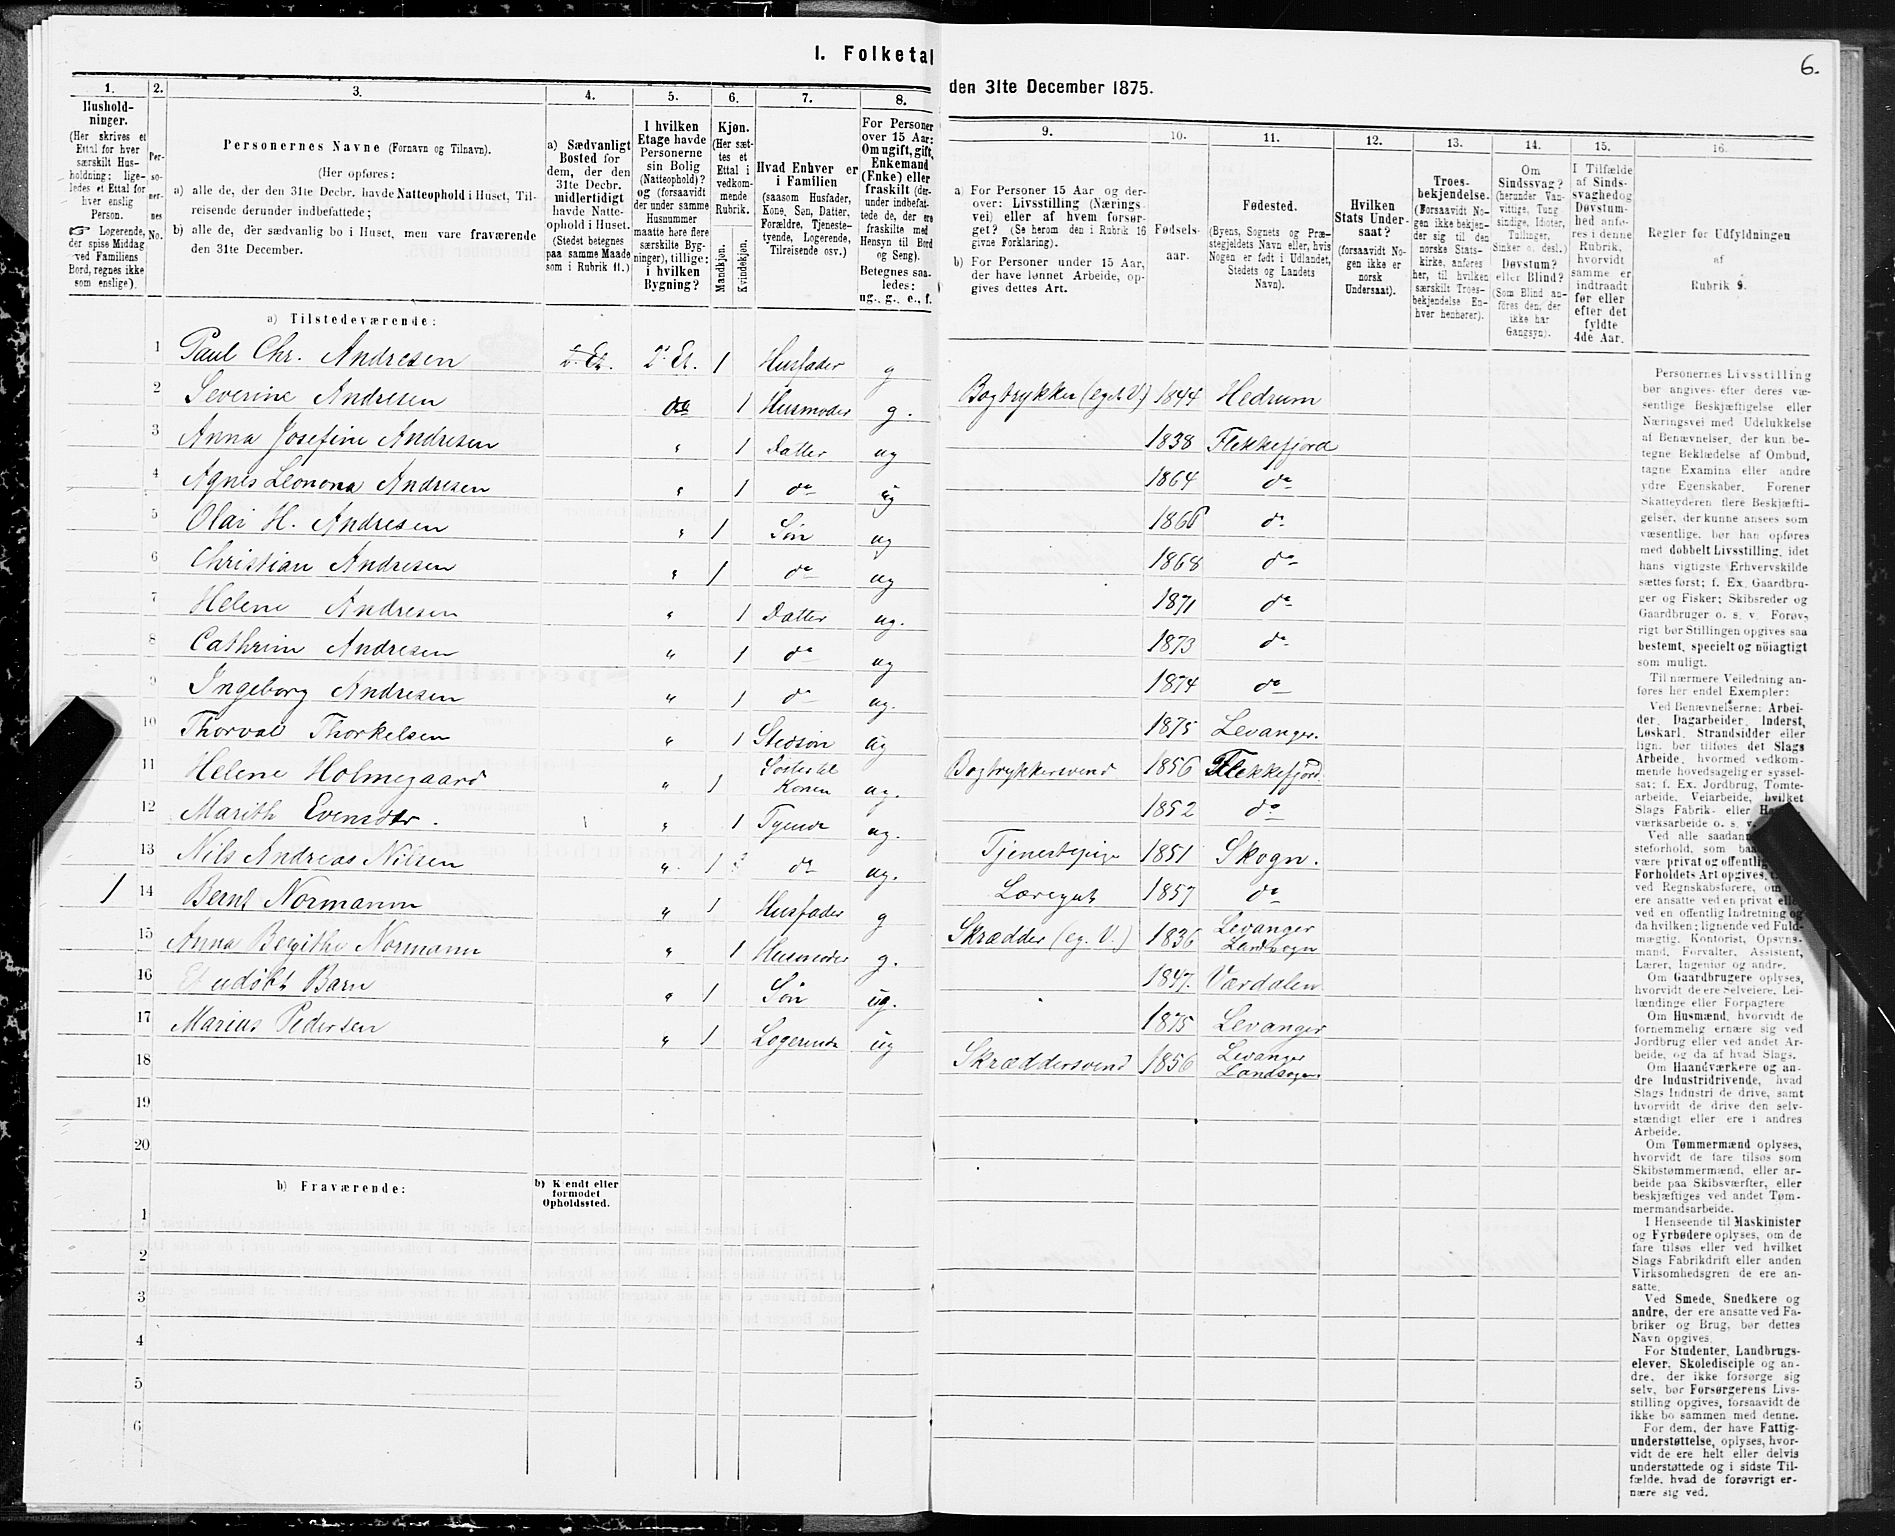 I. Folketal
den 31te December 1875.
6.
1.
Hushold-
ninger.
(Her skrives et
Ettal for hver
særskilt Hus-
holdning; lige-
ledes et Ettal for
hver enslig
Person.
☞ Logerende,
der spise Middag
ved Familiens
Bord, regnes ikke
som enslige).
2.
Per-
so-
ner-
nes
No.
3.
Personernes Navne (Fornavn og Tilnavn).
(Her opføres:
a) alle de, der den 31te Decbr. havde Natteophold i Huset, Til-
reisende derunder indbefattede;
b) alle de, der sædvanlig bo i Huset, men vare fraværende
den 31te December.
4.
a) Sædvanligt
Bosted for
dem, der den
31te Decbr.
midlertidigt
havde Natte-
ophold i Huset.
(Stedet betegnes
paa samme Maade
som i Rubrik 11.)
5.
I hvilken
Etage havde
Personerne
sin Bolig
(Natteophold)?
og (forsaavidt
der under samme
Husnummer
maatte høre flere
særskilte Byg-
ninger), tillige:
i hvilken
Bygning?
6.
Kjøn.
(Her sæt-
tes et
Ettal i
vedkom-
mende
Rubrik.
Mandkjøn.
Kvindekjøn.
7.
Hvad Enhver er
i Familien
(saasom Husfader,
Kone, Søn, Datter,
Forældre, Tjeneste-
tyende, Logerende,
Tilreisende osv.)
8.
For Personer
over 15 Aar:
Om ugift, gift,
Enkemand
(Enke) eller
fraskilt (der-
under indbefat-
tede de, der ere
fraskilte med
Hensyn til Bord
og Seng).
Betegnes saa-
ledes:
ug., g., e., f.
9.
a) For Personer 15 Aar og der-
over: Livsstilling (Nærings-
vei) eller af hvem forsør-
get? (Se herom den i Rubrik 16
givne Forklaring).
b) For Personer under 15 Aar,
der have lønnet Arbeide, op-
gives dettes Art.
10.
Fødsels-
aar.
11.
Fødested.
(Byens, Sognets og Præ-
stegjeldets Navn eller, hvis
Nogen er født i Udlandet,
Stedets og Landets
Navn).
12.
Hvilken
Stats Under-
saat?
(forsaavidt No-
gen ikke er
norsk
Undersaat).
13.
Troes-
bekjendelse.
(Forsaavidt No-
gen ikke bekjen-
der sig til den
norske Stats-
kirke, anføres
her, til hvilken
særskilt Troes-
bekjendelse En-
hver henhører).
14.
Om
Sindssvag?
(herunder Van-
vittige, Tung
sindige, Idioter,
Tullinger,
Sinker o. desl.)
Døvstum?
eller Blind?
(Som Blind an-
føres den, der
ikke har
Gangsyn).
15.
I Tilfælde
af Sinds-
svaghed og
Døvstum-
hed anfø-
res i denne
Rubrik,
hvorvidt
samme er
indtraadt
før eller
efter det
fyldte
4de Aar.
16.
Regler for Udfyldningen
af
Rubrik 9.
a) Tilstedeværende:
1 Paul Chr. Andresen 2. Et. 2. Et. 1 Husfader g Bogtrykker (eget V.) 1844 Hedrum
2 Severine Andresen do 1 Husmoder g. 1838 Flekkefjord
3 Anna Josefine Andresen " 1 Datter ug 1864 do
4 Agnes Leonora Andresen " 1 do ug 1866 do
5 Olai H. Andresen " 1 Søn ug 1868 do
6 Christian Andresen " 1 do ug 1871 do
7 Helene Andresen " 1 Datter ug. 1873 do
8 Cathrine Andresen " 1 do ug 1874 do
9 Ingeborg Andresen " 1 do ug. 1875 Levanger.
10 Thorval Thorkelsen " 1 Stedsøn ug Bogtrykkersvend 1856 Flekkefjord
11 Helene Holmegaard " 1 Søster til Konen ug. 1852 do
12 Marith Evensdtr. " 1 Tyende ug. Tjenestepige 1851 Skogn.
13 Nils Andreas Nilsen " 1 do ug. Læregut 1857 do
1 14 Bernt Normann " 1 Husfader g Skrædder (eg. V.) 1836 Levanger Landsogn
15 Anna Begithe Normann " 1 Husmoder g. 1847. Værdalen
16 Et udøbt Barn " 1 Søn ug. 1875 Levanger
17 Marius Pedersen " 1 Logerende ug Skræddersvend 1856 Levanger Landsogn
18
19
20
b) Fraværende:
b) Kjendt eller
formodet
Opholdssted.
1
2
3
4
5
6
Personernes Livsstilling
bør angives efter deres væ-
sentlige Beskjæftigelse eller
Næringsvei med Udelukkelse
af Benævnelser, der kun be-
tegne Beklædelse af Ombud,
tagne Examina eller andre
ydre Egenskaber. Forener
Skatteyderen flere Beskjæfti-
gelser, der kunne ansees som
væsentlige, bør han opføres
med dobbelt Livsstilling, idet
hans vigtigste Erhvervskilde
sættes først; f. Ex. Gaardbru-
ger og Fisker; Skibsreder og
Gaardbruger o. s. v. Forøv-
rigt bør Stillingen opgives saa
bestemt, specielt og nöiagtigt
som muligt.
Til nærmere Veiledning an-
føres her endel Exempler:
Ved Benævnelserne: Arbei-
der, Dagarbeider, Inderst,
Løskarl, Strandsidder eller
lign. bør tilføies det Slags
Arbeide, hvormed vedkom-
mende hovedsagelig er syssel-
sat; f. Ex. Jordbrug, Tomte-
arbeide, Veiarbeide, hvilket
Slags Fabrik- eller
værksarbeide o. s. v.
Ved alle saadanne
steforhold, som
være privat og offentlig,
Forholdets Art opgives,
ved Regnskabsførere, om
ere ansatte ved en privat eller
ved en offentlig Indretning og
da hvilken; lignende ved Fuld-
mægtig, Kontorist, Opsyns-
mand, Forvalter, Assistent,
Lærer, Ingeniør og andre.
Om Gaardbrugere oplyses,
hvorvidt de ere Selveiere, Lei-
lændinge eller Forpagtere
Om Husmænd, hvorvidt de
fornemmelig ernære sig ved
Jordbrug eller ved andet Ar-
beide, og da af hvad Slags.
Om Haandværkere og an-
dre Industridrivende, hvad
Slags Industri de drive, samt
hvorvidt de drive den selv-
stændigt eller ere i andres
Arbeide.
Om Tømmermænd oplyses,
hvorvidt de fare tilsøs som
Skibstømmermænd, eller ar-
beide paa Skibsværfter, eller
beskjæftiges ved andet Tøm-
mermandsarbeide.
I Henseende til Maskinister
og Fyrbødere oplyses, om de
fare tilsøs eller ved hvilket
Slags Fabrikdrift eller anden
Virksomhedsgren de ere an-
satte.
Ved Smede, Snedkere og
andre, der ere ansatte ved Fa-
briker og Brug, bør dettes
Navn opgives.
For Studenter, Landbrugs-
elever, Skoledisciple og an-
dre, der ikke forsørge sig
selv, bør Forsørgerens Livs-
stilling opgives, forsaavidt de
ikke bo sammen med denne.
For dem, der have Fattig-
understøttelse, oplyses, hvor-
vidt de ere helt eller delvis
understøttede og i sidste Til-
fælde, hvad de forøvrigt er-
nære sig ved.